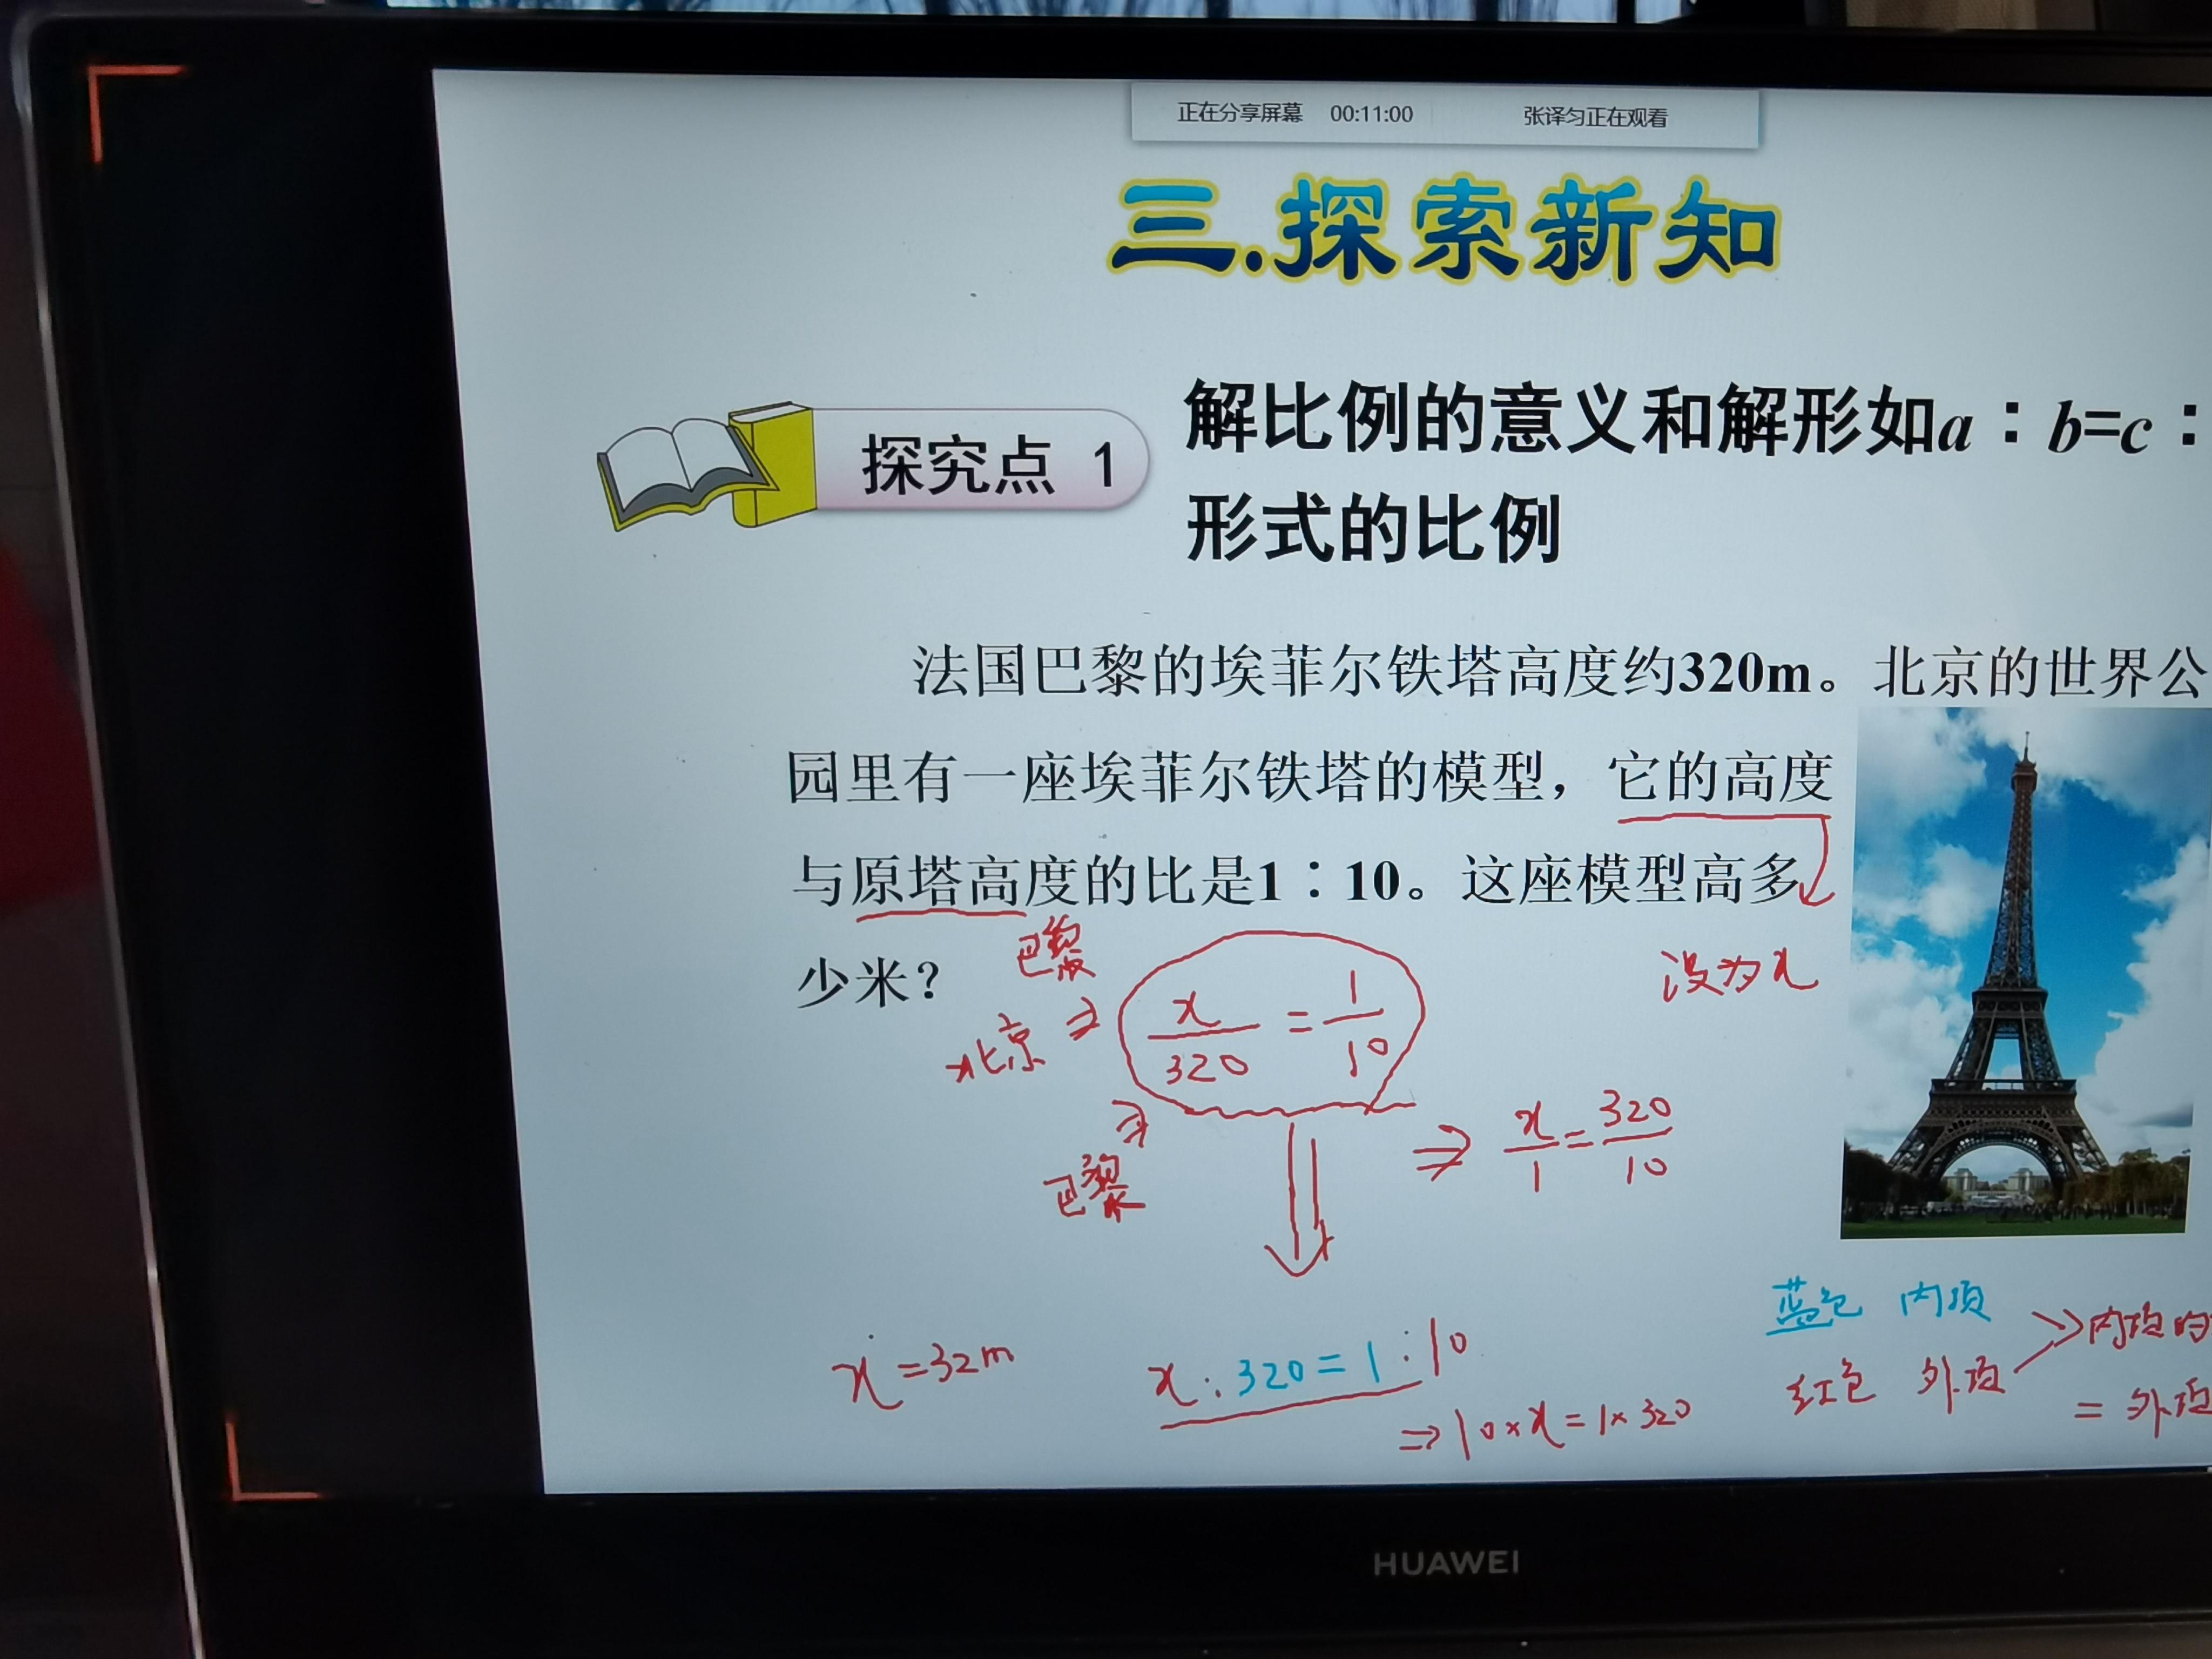 正在分享屏幕 00:11:00 张译匀正在观看
三.探索新知
探究点 1
解比例的意义和解形如a∶b=c∶
形式的比例
法国巴黎的埃菲尔铁塔高度约320m。北京的世界公
园里有一座埃菲尔铁塔的模型，它的高度
与原塔高度的比是1∶10。这座模型高多
少米？
巴黎
设为x
北京 ⇒ x/320 = 1/10
⇒
巴黎
⇒ x/1 = 320/10
蓝色 内项
红色 外项
内项的
= 外项
x = 32m
x : 320 = 1 : 10
⇒ 10×x = 1×320
HUAWEI